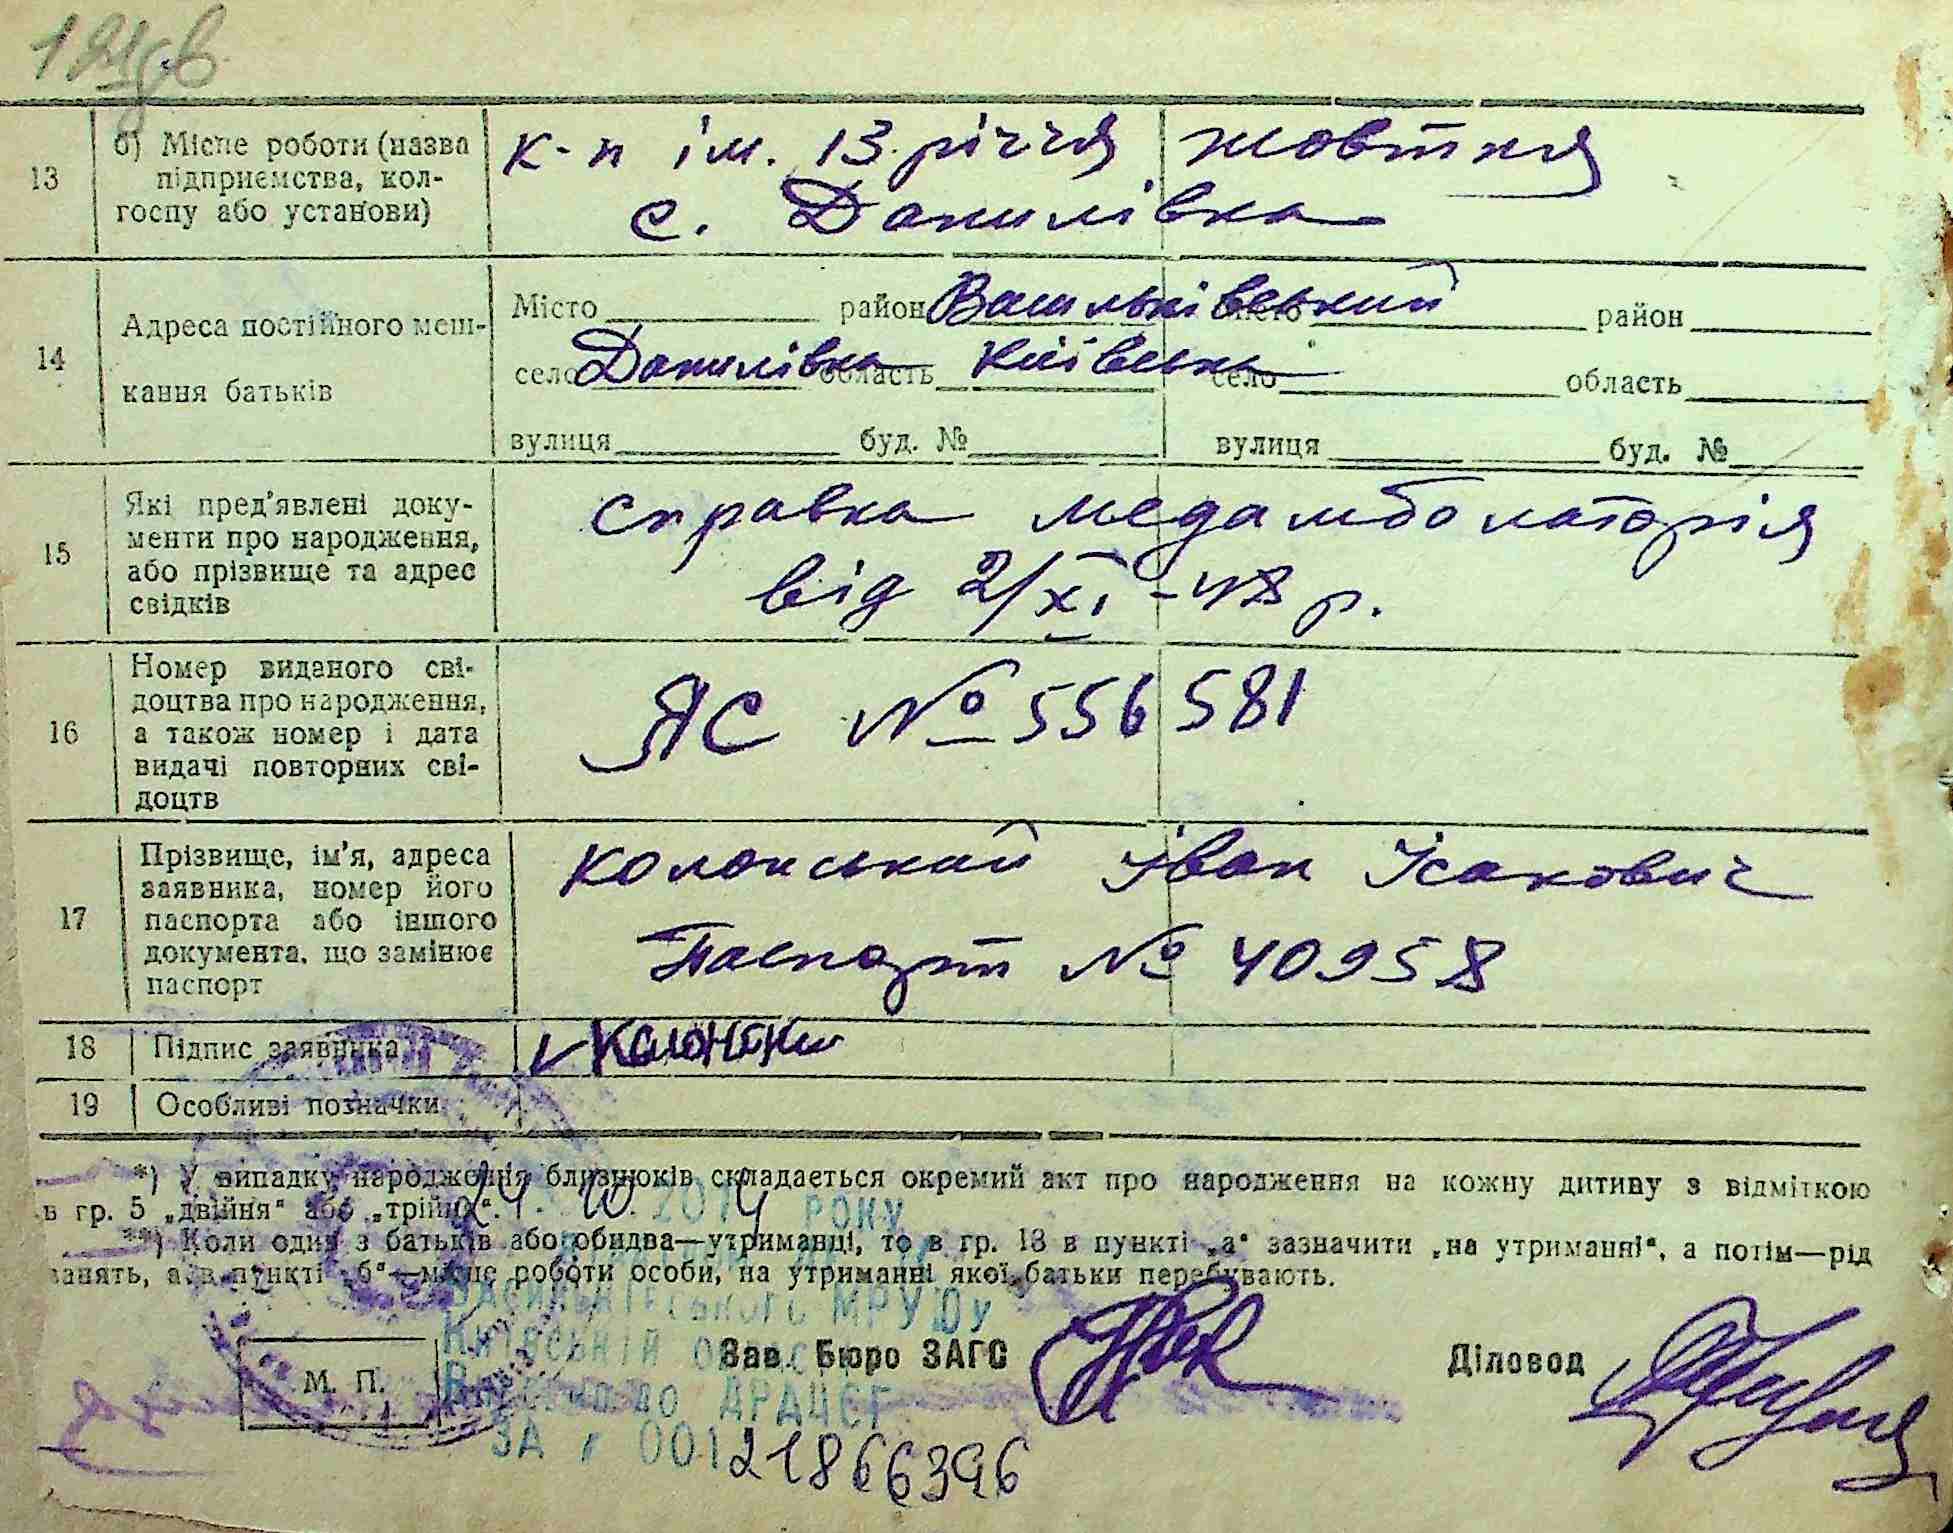 13 б) Місце роботи (назва підприємства, колгоспу або установи)
к-п ім. 13 річчя жовтня
с. Данилівка
14 Адреса постійного мешкання батьків
Місто район Васильківський місто район
село Данилівка область Київська село область
вулиця буд. № вулиця буд. №
15 Які пред'явлені документи про народження, або прізвище та адрес свідків
справка медамболаторія
від 2/XI-48 р.
16 Номер виданого свідоцтва про народження, а також номер і дата видачі повторних свідоцтв
ЯС № 556581
17 Прізвище, ім'я, адреса заявника, номер його паспорта або іншого документа, що замінює паспорт
Колонський Іван Ісакович
Паспорт № 40958
18 Підпис заявника
19 Особливі позначки
*) У випадку народження близнюків складається окремий акт про народження на кожну дитину з відміткою
в гр. 5 „двійня“ або „трійня“.
24. 10. 2014 РОКУ
**) Коли один з батьків або обидва—утриманці, то в гр. 13 в пункті „а“ зазначити „на утриманні“, а потім—рід
занять, а в пункті „б“—місце роботи особи, на утриманні якої батьки перебувають.
Васильківського МРУЮ у
Київській області
Зав. Бюро ЗАГС
Діловод
М. П.
Витяг по ДРАЦСГ
ЗА № 00121866396